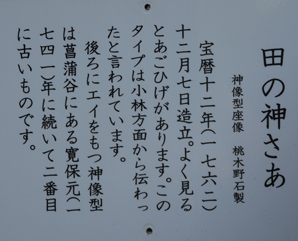 田の神さあ
神像型座像 桃木野石製
宝暦十二年(一七六二)
十二月七日造立。よく見る
とあごひげがあります。この
タイプは小林方面から伝わっ
たと言われています。
後ろにエイをもつ神像型
は菖蒲谷にある寛保元(一
七四一)年に続いて二番目
に古いものです。